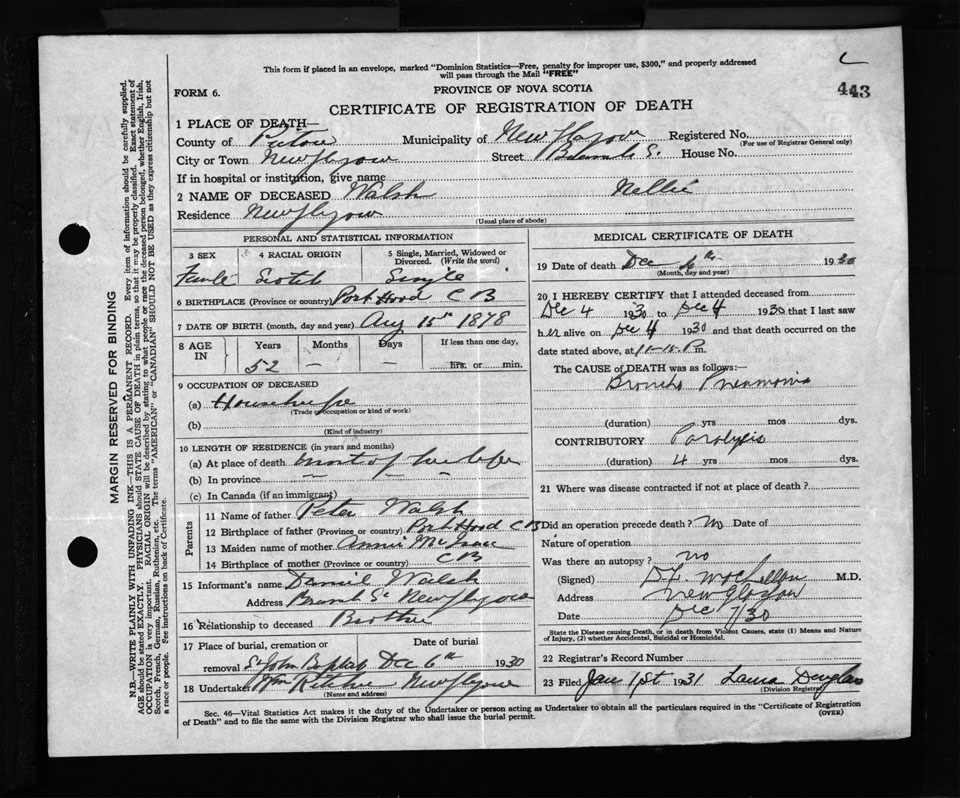 This form if placed in an envelope, marked "Dominion Statistics—Free, penalty for improper use, $300," and properly addressed
will pass through the Mail "FREE"
FORM 6.
PROVINCE OF NOVA SCOTIA
443
CERTIFICATE OF REGISTRATION OF DEATH
1 PLACE OF DEATH—
County of Pictou Municipality of New Glasgow Registered No.
(For use of Registrar General only)
City or Town New Glasgow Street S. House No.
If in hospital or institution, give name
2 NAME OF DECEASED Walsh Nellie
Residence New Glasgow
(Usual place of abode)
PERSONAL AND STATISTICAL INFORMATION
3 SEX 4 RACIAL ORIGIN 5 Single, Married, Widowed or Divorced. (Write the word)
Female Scotch Single
6 BIRTHPLACE (Province or country) Port Hood C B
7 DATE OF BIRTH (month, day and year) Aug 15th 1878
8 AGE IN Years Months Days If less than one day,
52 — — hrs. or min.
9 OCCUPATION OF DECEASED
(a)
(Trade occupation or kind of work)
(b)
(Kind of industry)
10 LENGTH OF RESIDENCE (in years and months)
(a) At place of death most of her life
(b) In province
(c) In Canada (if an immigrant)
Parents
11 Name of father Peter Walsh
12 Birthplace of father (Province or country) Port Hood C B
13 Maiden name of mother Annie McIsaac
14 Birthplace of mother (Province or country) C B
15 Informant's name Daniel Walsh
Address New Glasgow
16 Relationship to deceased Brother
17 Place of burial, cremation or Date of burial
removal St John Baptist Dec 6th 1930
18 Undertaker Wm Ritchie New Glasgow
(Name and address)
MEDICAL CERTIFICATE OF DEATH
19 Date of death Dec 1930
(Month, day and year)
20 I HEREBY CERTIFY that I attended deceased from
Dec 4 1930 to Dec 4 1930 that I last saw
h er alive on Dec 4 1930 and that death occurred on the
date stated above, at 11-15 P m.
The CAUSE of DEATH was as follows:—
Broncho Pneumonia
(duration) yrs mos dys.
CONTRIBUTORY Paralysis
(duration) 4 yrs mos dys.
21 Where was disease contracted if not at place of death?
Did an operation precede death? No Date of
Nature of operation
Was there an autopsy? no
(Signed) M.D.
Address New Glasgow
Date Dec 7/30
State the Disease causing Death, or in death from Violent Causes, state (1) Means and Nature
of Injury, (2) whether Accidental, Suicidal or Homicidal.
22 Registrar's Record Number
23 Filed Jan 1st 1931 Lama Douglas
(Division Registrar)
Sec. 46—Vital Statistics Act makes it the duty of the Undertaker or person acting as Undertaker to obtain all the particulars required in the "Certificate of Registration
of Death" and to file the same with the Division Registrar who shall issue the burial permit.
(OVER)
MARGIN RESERVED FOR BINDING
N.B.—WRITE PLAINLY WITH UNFADING INK—THIS IS A PERMANENT RECORD. Every item of information should be carefully supplied.
AGE should be stated EXACTLY. PHYSICIANS should STATE CAUSE OF DEATH in plain terms, so that it may be properly classified. Exact statement of
OCCUPATION is very important. RACIAL ORIGIN will be described by stating to what people or race the deceased person belonged, whether English, Irish,
Scotch, French, German, Russian, Ruthenian, etc. The terms "AMERICAN" or "CANADIAN" SHOULD NOT BE USED as they express citizenship but not
a race or people. See instructions on back of Certificate.